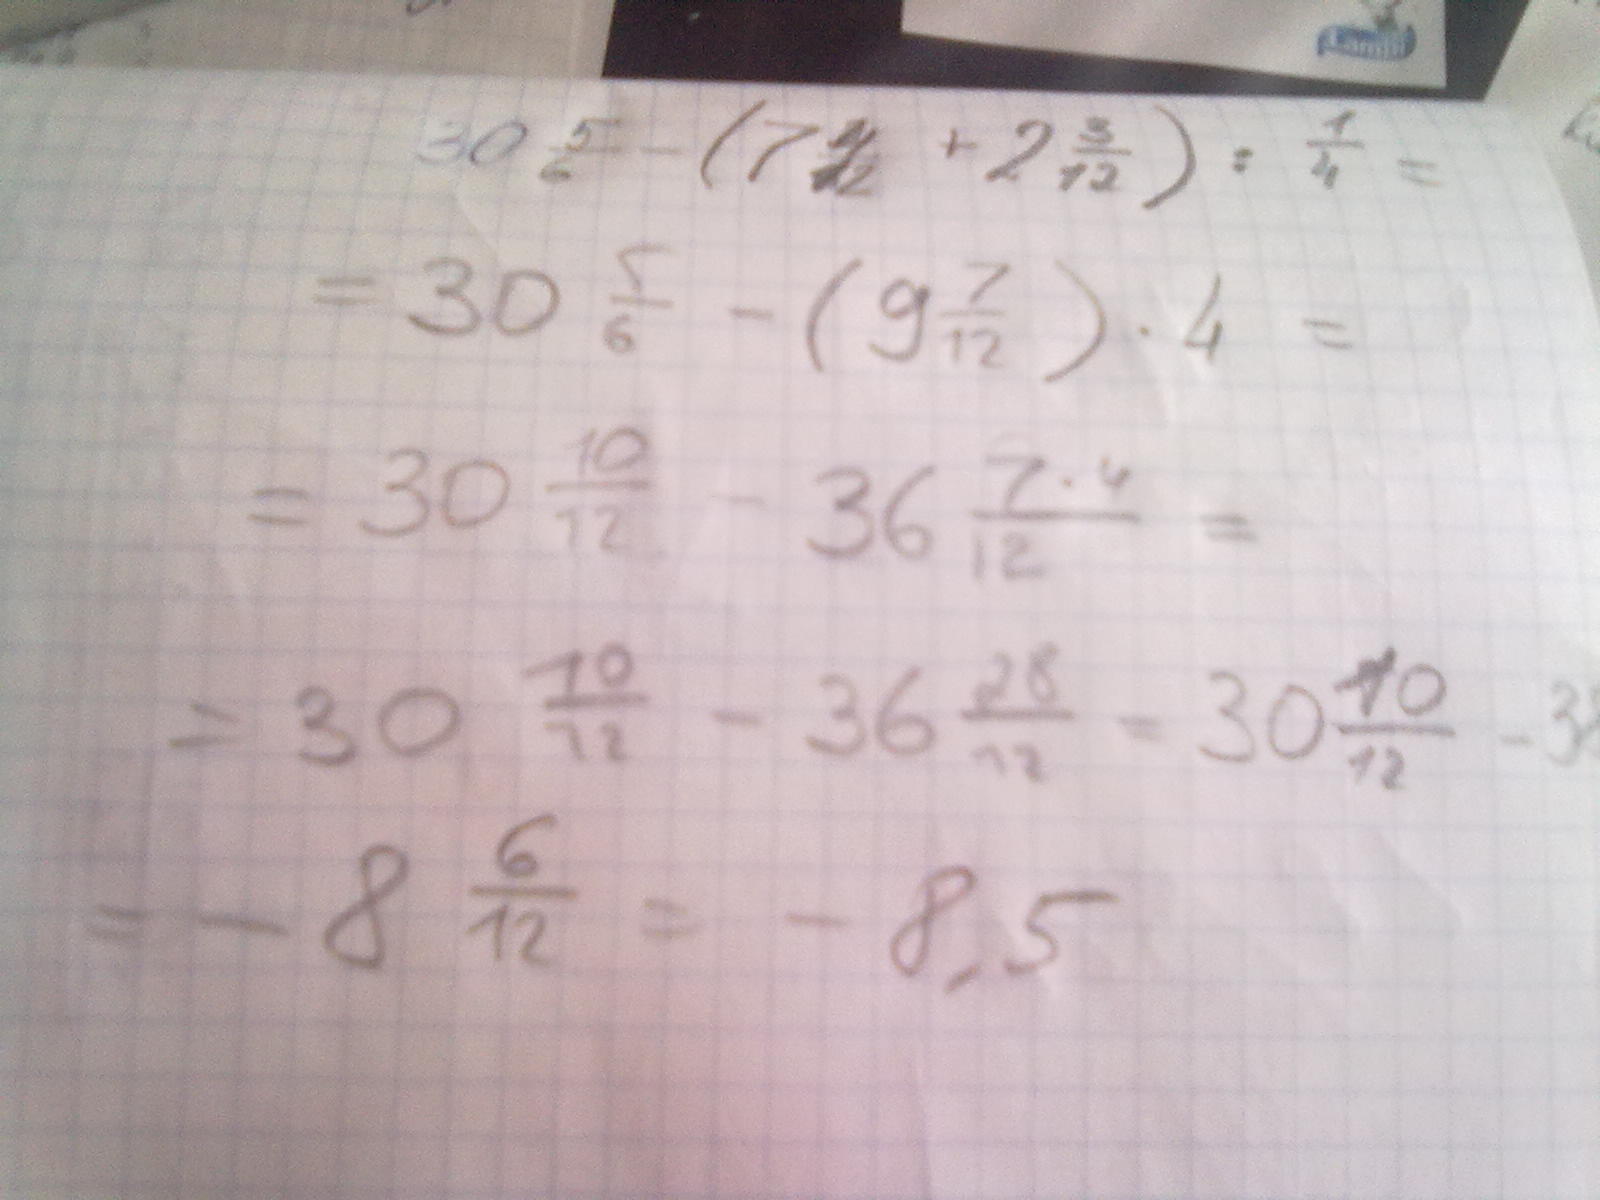 30 5/6 - (7 4/12 + 2 3/12) : 1/4 =
= 30 5/6 - (9 7/12) · 4 =
= 30 10/12 - 36 7·4/12 =
= 30 10/12 - 36 28/12 = 30 10/12 - 38
= - 8 6/12 = - 8,5